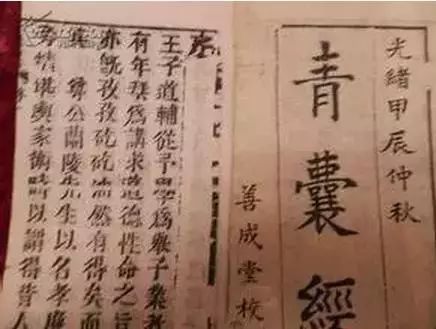 光緒甲辰仲秋
青囊經
善成堂校
王子道輔從予學爲舉子業者
有年爲講求道德性命之言
亦旣孜孜矻矻然有得矣而
尊公蘭陵先生以名孝廉
堪輿家術時以謂得昔人